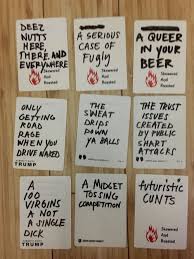 DEEZ
NUTTS
HERE,
THERE, AND
EVERYWHERE
Skewered
And
Roasted
A SERIOUS
CASE OF
FUGLY
Skewered
And
Roasted
A QUEER
IN YOUR
BEER
Skewered
And
Roasted
ONLY
GETTING
ROAD
RAGE
WHEN YOU
DRIVE NAKED
TRUMP
THE
SWEAT
DRIPS
DOWN
YA BALLS
THE TRUST
ISSUES
CREATED
BY PUBLIC
SHART
ATTACKS
A
100
VIRGINS
A NOT
A SINGLE
DICK
TRUMP
A MIDGET
TOSSING
COMPETITION
futuristic
CUNTS
Skewered
And
Roasted